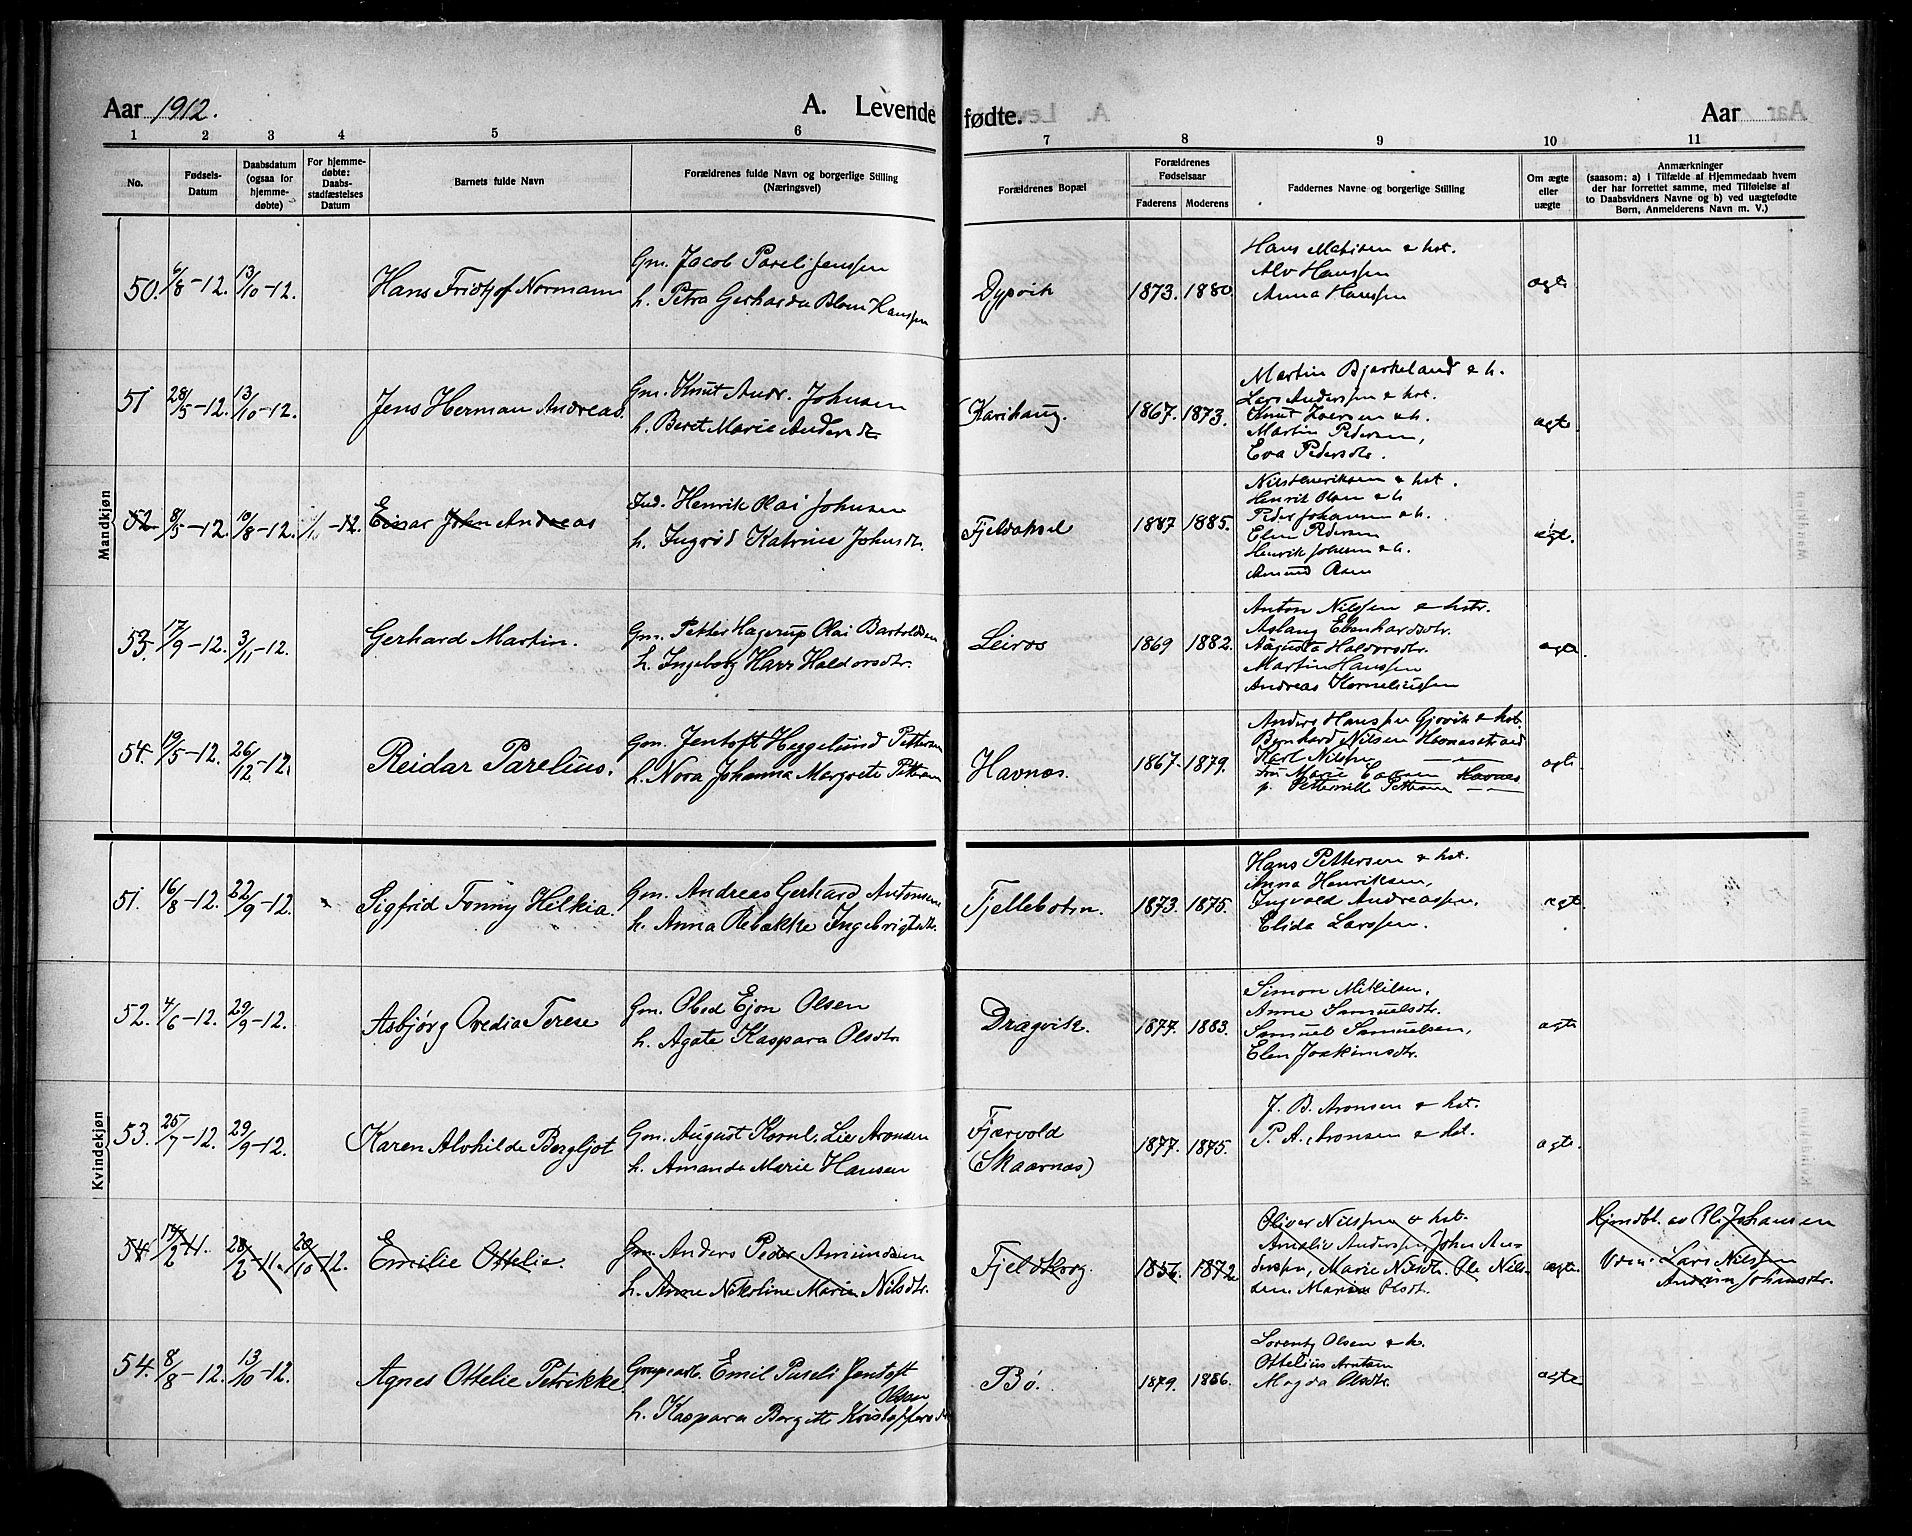 Aar 1912.
A. Levende fødte.
Aar
1 2 3 4 5 6 7 8 9 10 11
No.
Fødsels-
Datum
Daabsdatum
(ogsaa for
hjemme-
døbte)
For hjemme-
døbte:
Daabs-
stadfæstelses
Datum
Barnets fulde Navn
Forældrenes fulde Navn og borgerlige Stilling
(Næringsvei)
Forældrenes Bopæl
Forældrenes
Fødselsaar
Faderens Moderens
Faddernes Navne og borgerlige Stilling
Om ægte
eller
uægte
Anmærkninger
(saasom: a) i Tilfælde af Hjemmedaab hvem
der har forrettet samme, med Tilføielse af
to Daabsvidners Navne og b) ved uægtefødte
Børn, Anmelderens Navn m. V.)
Mandkjøn
50. 6/8-12. 13/10-12. Hans Fridtjof Normann
Gm. Jacob Pareli Jenssen
h. Petra Gerharda Blom Hanssen
Dypvik 1873. 1880
Hans Mathisen & hst.
Alv Hanssen
Anna Hanssen
ægte
51 28/5-12. 13/10-12. Jens Herman Andreas.
Gm. Knut Andr. Johnsen
h. Beret Marie Andersdtr
Karihaug. 1867. 1873.
Martin Bjerkeland & h.
Lars Anderssen & hst.
Knut Larsen & h.
Martin Pedersen,
Eva Pedersdtr.
ægte
52 8/5-12. 10/8-12. -12. Einar John Andreas
Ind. Henrik Olai Johnsen
h. Ingrid Katrine Johnsdtr.
Fjeldaksel 1887 1885.
Nils Henriksen & hst.
Henrik Olsen & h
Peder Johansen & h.
Elen Pedersen
Henrik Johnsen & h.
Amund Olsen
ægt.
53. 17/9-12. 3/11-12. Gerhard Martin.
Gm. Petter Hagerup Olai Bartoldsen
h. Ingeborg Harr Haldorsdtr.
Leiros 1869 1882.
Anton Nilssen & hstr.
Aslaug Ebenhardsdtr.
Augusta Haldorsdtr.
Martin Hanssen
Andreas Korneliussen
ægte
54. 19/5-12. 26/12-12. Reidar Parelius.
Gm. Jentoft Heggelund Pettersen
h. Nora Johanna Margrete Pettersen
Havnæs. 1867. 1879.
Anders Hanssen Gjøvik & hst.
Bernhard Nilsen Havnesstrand
Karl Nilssen — —
Fru Marie Havnæs
p. Pettersen — —
ægte
Kvindekjøn
51. 16/8-12. 22/9-12. Sigfrid Tonny Hilkia.
Gm. Andreas Gerhard Antonsen
h. Anna Rebække Ingebrigtsdtr.
Fjellebotn. 1873. 1875.
Hans Pettersen & hst.
Anna Henriksen,
Ingvald Andreassen,
Elida Larssen.
ægte
52. 4/6-12. 29/9-12. Asbjørg Ovedia Terese
Gm. Obed Ejon Olsen
h. Agate Kaspara Olsdtr
Dragvik. 1877. 1883.
Simon Mikilsen,
Anne Samuelsdtr.
Samuel Samuelsen,
Elen Joakimsdtr.
ægte
53. 25/7-12. 29/9-12. Karen Alvhilde Bergljot
Gm. August Kornl. Lie Aronsen
h. Amanda Marie Hansen
Fjærvold
(Skaarnæs)
1877. 1875.
J. B. Aronsen & hst.
P. A. Aronsen & hst.
ægte.
54. 14/2-11. 28/2-11. 20/10-12. Emilie Ottelie.
Gm. Anders Peder Amundsen
h. Anne Nikoline Marie Nilsdtr.
Fjeldskog. 1856. 1872
Oliver Nilssen & hst.
Amalie Anderssen, John An-
derssen, Marie Nilsdtr. Ole Nils-
sen. Marie Olsdtr.
ægte
Hjemdbt. av Ole Johansen
Vidne: Lars Nilssen
Johansdtr.
54. 8/8-12. 13/10-12. Agnes Ottelie Petrikke
Grupearb. Emil Pareli Jentoft
Olsen
h. Kaspara Bergitte Kristoffersd
Bø. 1879. 1886.
Lorentz Olsen & h.
Ottelius Arntsen
Magda Olsdtr.
ægte